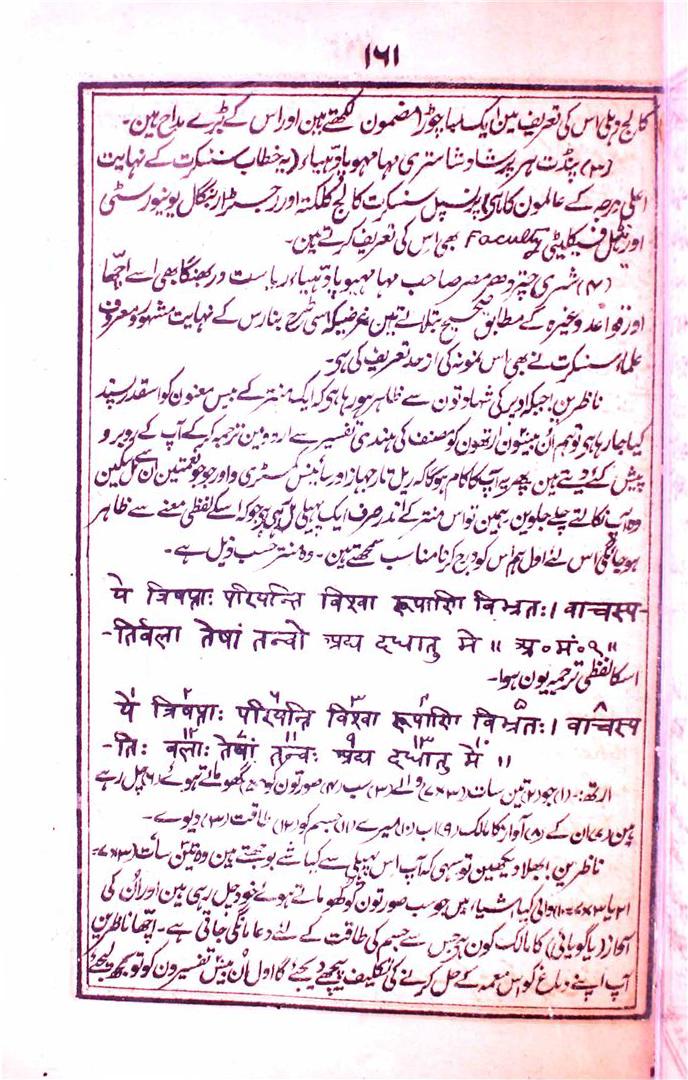 ۱۶۱
کالج دہلی اس کی تعریف مین ایک لمبا چوڑا مضمون لکھتے ہین اور اس کے بڑے مداح ہین۔
(۳) پنڈت ہرپرشاد شاستری مہا مہو پادھیاء (یہ خطاب سنسکرت کے نہایت
اعلیٰ درجہ کے عالمون کا ہی) پرنسپل سنسکرت کالج کلکتہ اور رجسٹرار بنگال یونیورسٹی
اورنٹیل فیکلیٹی Faculty بھی اس کی تعریف کرتے ہین۔
(۴) شری چتر دھر مصر صاحب مہا مہو پادھیاء ریاست دربھنگا بھی اسے اچھا
اور قواعد وغیرہ کے مطابق صحیح بتلاتے ہین غرضیکہ اسی طرح بنارس کے نہایت مشہور و معروف
علماء سنسکرت نے بھی اس نمونہ کی ازحد تعریف کی ہی۔
ناظرین! جبکہ اوپر کی شہادتون سے ظاہر ہو رہا ہی کہ ایک منتر کے بیس معنون کو اسقدر پسند
کیا جا رہا ہی تو ہم ان بیسون ارتھون کو مصنف کی ہندی تفسیر سے اردو مین ترجمہ کرکے آپ کے روبرو
پیش کئے دیتے ہین پھر یہ آپ کا کام ہوگا کہ ریل تار جہاز اور سائینس کمسٹری و اور جو جو نعمتین ان سے نکل سکین
وہ آپ نکالتے چلے جاوین ہمین تو اس منتر کے اندر صرف ایک پہیلی مل رہی ہی جو کہ اسکے لفظی معنے سے ظاہر
ہو جائیگی اس لئے اول ہم اس کو درج کرنا مناسب سمجھتے ہین۔ وہ منتر حسب ذیل ہے۔
ये त्रिषप्ताः परियन्ति विश्वा रूपाणि बिभ्रतः। वाचस्प-
-तिर्बला तेषां तन्वो अद्य दधातु मे ॥ अ॰ मं॰ १॥
اسکا لفظی ترجمہ یون ہوا۔
ये त्रिषप्ताः परियन्ति विश्वा रूपाणि बिभ्रतः। वाचस्प
-तिः बलाः तेषां तन्वः अद्य दधातु मे ॥
ارتھ:- (۱) جو (۲) تین سات (۷×۳) والے (۳) سب (۴) صورتون کو (۵) گھوماتے ہوئے (۶) چل رہے
ہین (۷) ان کے (۸) آواز کا مالک (۹) اب (۱۰) میرے (۱۱) جسم کو (۱۲) طاقت (۱۳) دیوے۔
ناظرین! بھلا دیکھین تو سہی کہ آپ اس پہیلی سے کیا شے بوجھتے ہین وہ تین سات (۷×۳=
۲۱ یا ۷+۳=۱۰) والی کیا اشیاء ہین جو سب صورتون کو گھوماتے ہوئے خود چل رہی ہین اور اُن کی
آواز (یا گویائی) کا مالک کون ہی جس سے جسم کی طاقت کے لئے دعا مانگی جاتی ہے۔ اچھا ناظرین
آپ اپنے دماغ کو اس معمہ کے حل کرنے کی تکلیف پیچھے دیجئے گا اول اُن بیس تفسیرون کو تو سمجھ لیجئے